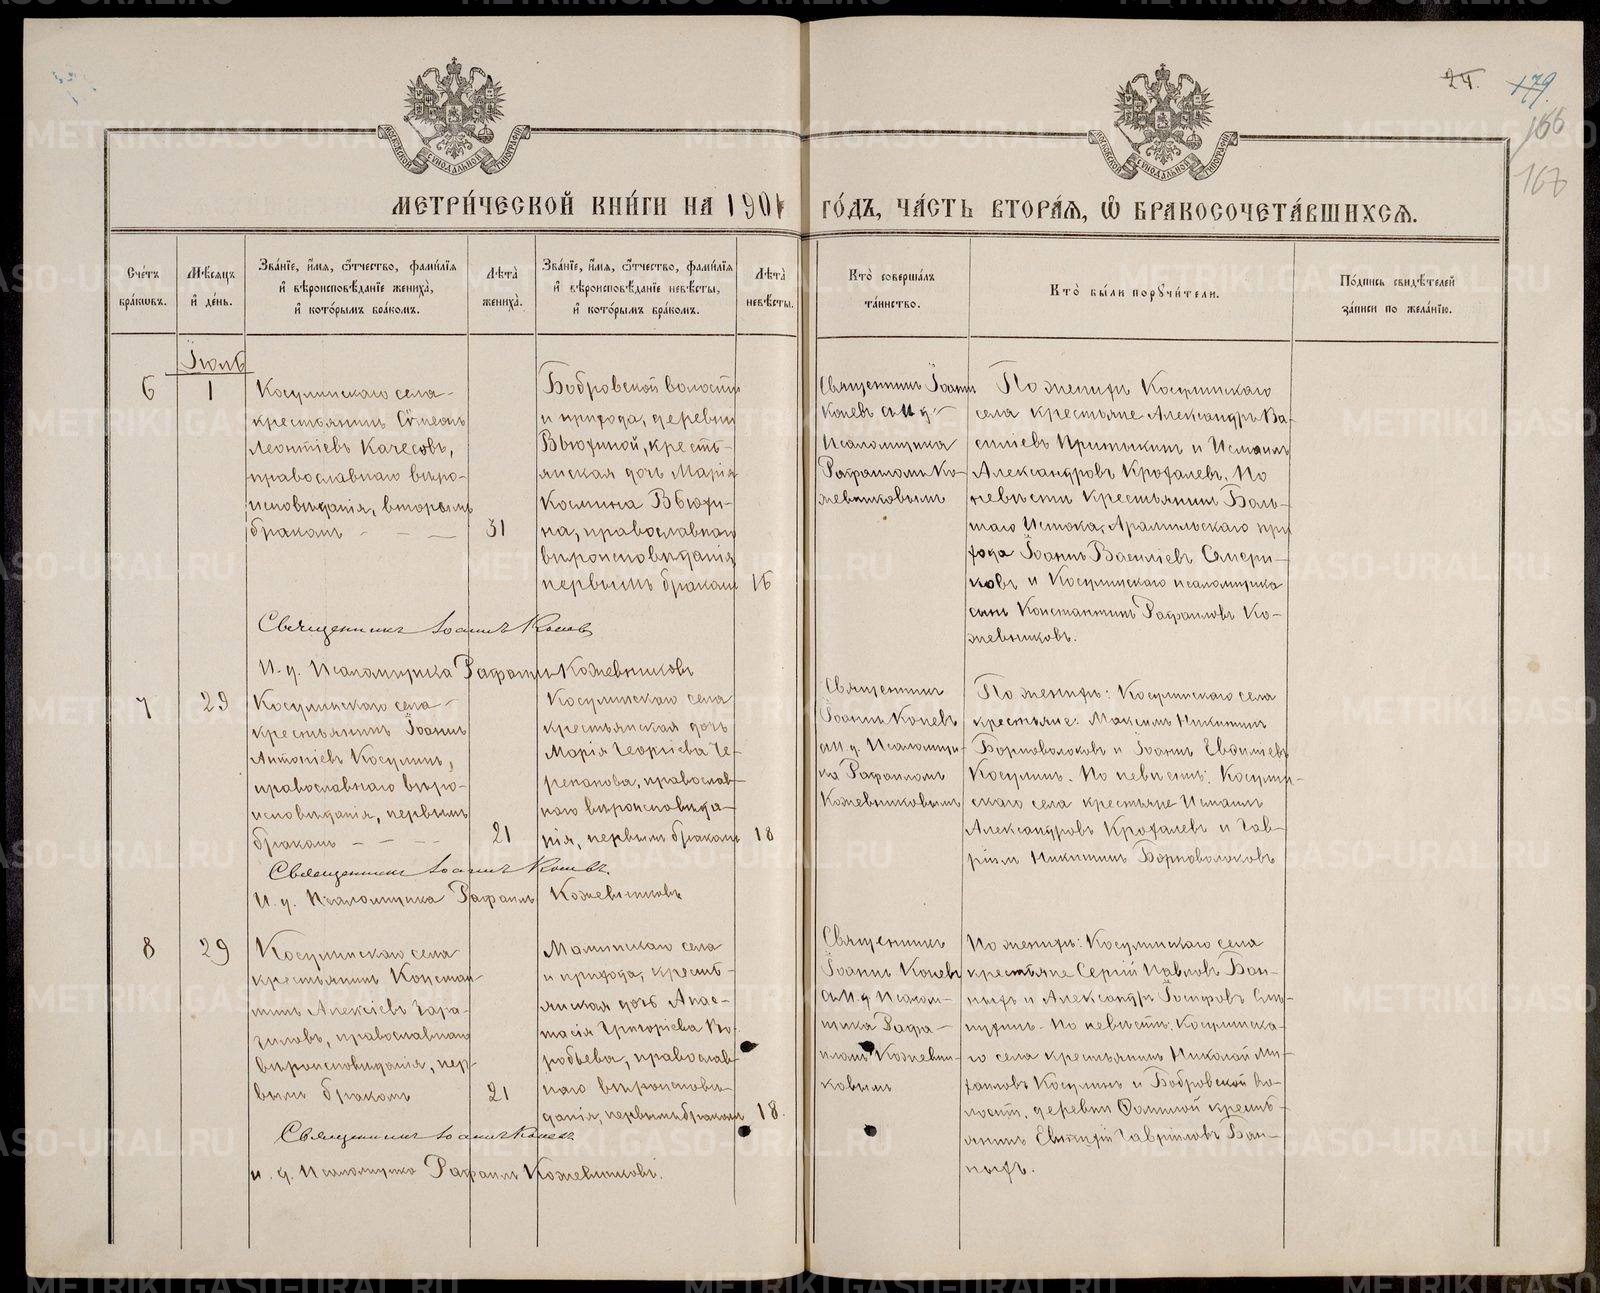 24.
179.
166
МОСКОВСКОЙ СѴНОДАЛЬНОЙ ТИПОГРАФІИ
МОСКОВСКОЙ СѴНОДАЛЬНОЙ ТИПОГРАФІИ
МЕТРИ́ЧЕСКОЙ КНИ́ГИ НА 1901 ГО́ДЪ, ЧА́СТЬ ВТОРА́Ѧ, Ѽ БРАКОСОЧЕТА́ВШИХСѦ.
Сче́тъ
бра́ковъ.
Мѣ́сѧцъ
и҆ де́нь.
Зва́нїе, и҆́мѧ, ѻ҆́тчество, фами́лїѧ
и҆ вѣроисповѣ́данїе жениха̀,
и҆ кото́рымъ бра́комъ.
Лѣта̀
жениха̀.
Зва́нїе, и҆́мѧ, ѻ҆́тчество, фами́лїѧ
и҆ вѣроисповѣ́данїе невѣ́сты,
и҆ кото́рымъ бра́комъ.
Лѣта̀
невѣ́сты.
Кто̀ соверша́лъ
та́инство.
Кто̀ бы́ли порꙋчи́тели.
По́дпись свидѣ́телей
за́писи по жела́нїю.
Іюль
6
1
Косулинскаго села
крестьянинъ Сѵмеонъ
Леонтіевъ Качесовъ,
православнаго вѣро-
исповѣданія, вторымъ
бракомъ - - —
31
Бобровской волости
и прихода, деревни
Вьюхиной, кресть-
янская дочь Марія
Космина Вьюхи-
на, православнаго
вѣроисповѣданія
первымъ бракомъ
16
Священникъ Іоаннъ
Коневъ съ И. д.
Псаломщика
Рафаиломъ Ко-
жевниковымъ
По женихѣ Косулинскаго
села крестьяне Александръ Ва-
силіевъ Притыкинъ и Исмаилъ
Александровъ Крохалевъ. По
невѣстѣ крестьянинъ Боль-
шаго Истока, Арамильскаго при
хода Іоаннъ Василіевъ
и Косулинскаго псаломщика
сынъ Константинъ Рафаиловъ Ко-
жевниковъ.
Священникъ Іоаннъ Коневъ
И. д. Псаломщика Рафаилъ Кожевниковъ
7
29
Косулинскаго села
крестьянинъ Іоаннъ
Антоніевъ Косулинъ,
православнаго вѣро-
исповѣданія, первымъ
бракомъ - - - -
21
Косулинскаго села
крестьянская дочь
Марія Георгіева Че-
репанова, православ-
наго вѣроисповѣда-
нія, первымъ бракомъ
18
Священникъ
Іоаннъ Коневъ
съ И. д. Псаломщи-
ка Рафаиломъ
Кожевниковымъ
По женихѣ: Косулинскаго села
крестьяне: Максимъ Никитинъ
Борноволоковъ и Іоаннъ
Косулинъ. По невѣстѣ: Косулин-
скаго села крестьяне Исмаилъ
Александровъ Крохалевъ и Гав-
ріилъ Никитинъ Борноволоковъ
Священникъ Іоаннъ Коневъ.
И. д. Псаломщика Рафаилъ Кожевниковъ
8
29
Косулинскаго села
крестьянинъ Констан-
тинъ Алексіевъ
православнаго
вѣроисповѣданія, пер-
вымъ бракомъ
21
Маминскаго села
и прихода, кресть-
янская дочь Анас-
тасія Григоріева Во-
робьева, православ-
наго вѣроисповѣ-
данія, первымъ бракомъ
18.
Священникъ
Іоаннъ Коневъ
съ И. д Псалом-
щика Рафа-
иломъ Кожевни-
ковымъ
По женихѣ: Косулинскаго села
крестьяне Сергій Павловъ Бан-
ныхъ и Александръ Іосифовъ
По невѣстѣ: Косулинска-
го села крестьянинъ Николай Ми-
хаиловъ Косулинъ и Бобровской во-
лости, деревни кресть-
янинъ Гавріиловъ Бан-
ныхъ.
Священникъ Іоаннъ Коневъ
и. д. Псаломщика Рафаилъ Кожевниковъ.
METRIKI.GASO-URAL.RU